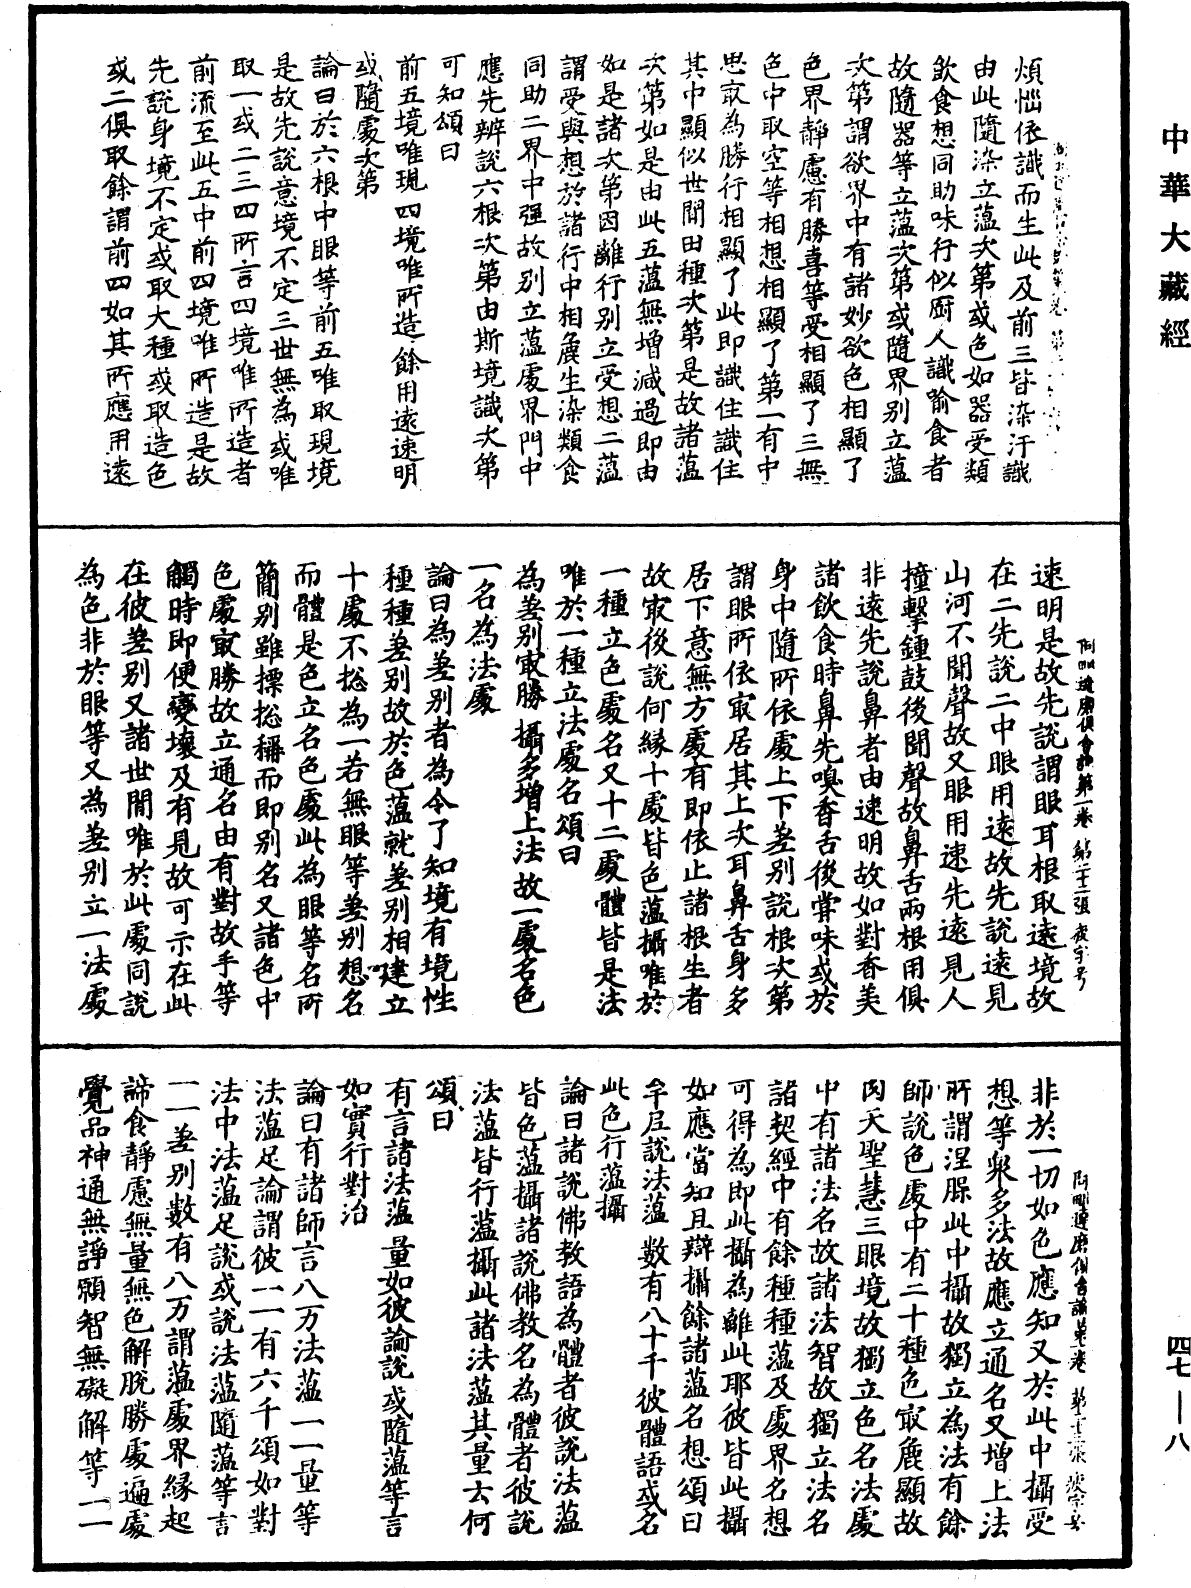 中華大藏經
煩惱依識而生此及前三皆染汙識
由此隨染立蘊次第或色如器受類
飲食想同助味行似厨人識喻食者
故隨器等立蘊次第或隨界別立蘊
次第謂欲界中有諸妙欲色相顯了
色界靜慮有勝喜等受相顯了三無
色中取空等相想相顯了第一有中
思㝡為勝行相顯了此即識住識住
其中顯似世間田種次第是故諸蘊
次第如是由此五蘊無增減過即由
如是諸次第因離行別立受想二蘊
謂受與想於諸行中相麁生染類食
同助二界中强故別立蘊處界門中
應先辨說六根次第由斯境識次第
可知頌曰
前五境唯現 四境唯所造 餘用遠速明
或隨處次第
論曰於六根中眼等前五唯取現境
是故先說意境不定三世無為或唯
取一或二三四所言四境唯所造者
前流至此五中前四境唯所造是故
先說身境不定或取大種或取造色
或二俱取餘謂前四如其所應用遠
阿毗達磨俱舍論第一卷 第二十二張
速明是故先說謂眼耳根取遠境故
在二先說二中眼用遠故先說遠見
山河不聞聲故又眼用速先遠見人
撞擊鍾鼓後聞聲故鼻舌兩根用俱
非遠先說鼻者由速明故如對香美
諸飲食時鼻先嗅香舌後甞味或於
身中隨所依處上下差別說根次第
謂眼所依㝡居其上次耳鼻舌身多
居下意無方處有即依止諸根生者
故㝡後說何緣十處皆色蘊攝唯於
一種立色處名又十二處體皆是法
唯於一種立法處名頌曰
為差別㝡勝 攝多增上法 故一處名色
一名為法處
論曰為差別者為令了知境有境性
種種差別故於色蘊就差別相建立
十處不揔為一若無眼等差別想名
而體是色立名色處此為眼等名所
簡別雖摽揔稱而即別名又諸色中
色處㝡勝故立通名由有對故手等
觸時即便變壞及有見故可示在此
在彼差別又諸世間唯於此處同說
為色非於眼等又為差別立一法處
阿毗達磨俱舍論第一卷 第二十三張
非於一切如色應知又於此中攝受
想等衆多法故應立通名又增上法
所謂涅槃此中攝故獨立為法有餘
師說色處中有二十種色㝡麁顯故
肉天聖慧三眼境故獨立色名法處
中有諸法名故諸法智故獨立法名
諸契經中有餘種種蘊及處界名想
可得為即此攝為離此耶彼皆此攝
如應當知且辯攝餘諸蘊名想頌曰
牟尼說法蘊 數有八十千 彼體語或名
此色行蘊攝
論曰諸說佛教語為體者彼說法蘊
皆色蘊攝諸說佛教名為體者彼說
法蘊皆行蘊攝此諸法蘊其量云何
頌曰
有言諸法蘊 量如彼論說 或隨蘊等言
如實行對治
論曰有諸師言八万法蘊一一量等
法蘊足論謂彼一一有六千頌如對
法中法蘊足說或說法蘊隨蘊等言
一一差別數有八万謂蘊處界緣起
諦食靜慮無量無色解脫勝處遍處
覺品神通無諍願智無礙解等一一
四七—八